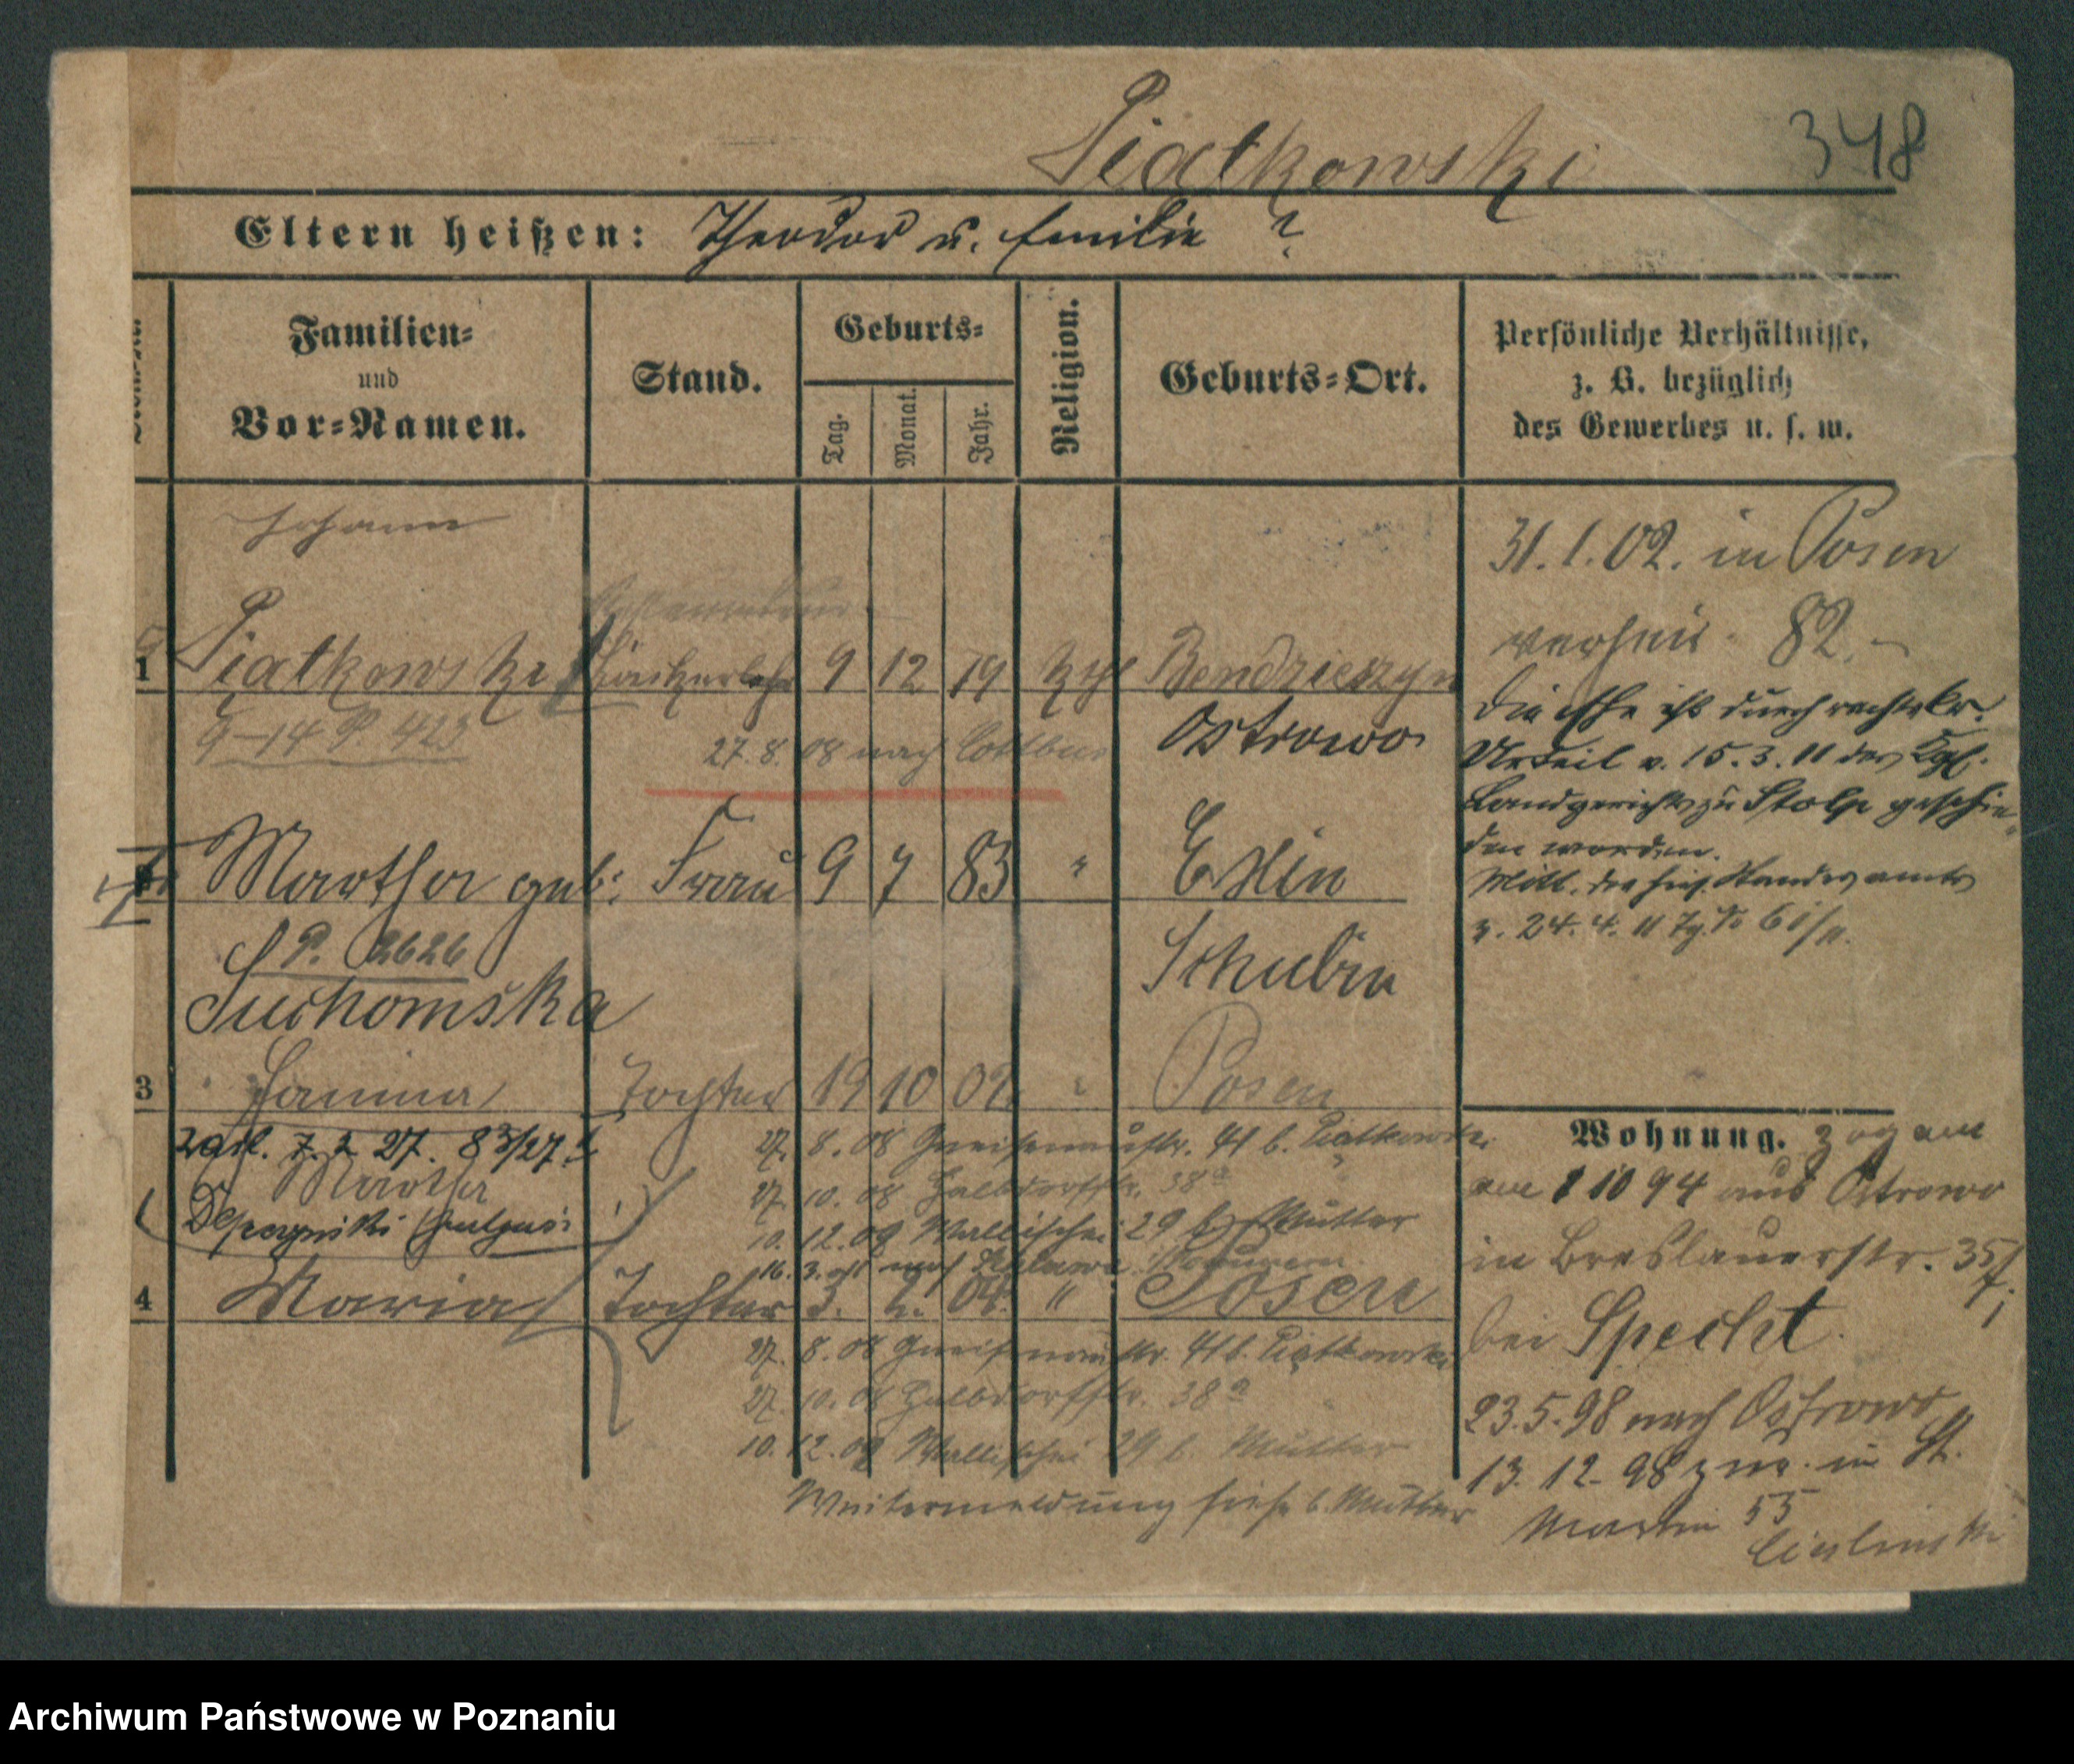 Piatkowski 348
Eltern heißen: Theodor u. Emilie ?
Familien- und Vor-Namen.
Stand.
Geburts-
Tag. Monat. Jahr.
Religion.
Geburts-Ort.
Persönliche Verhältnisse,
z. B. bezüglich
des Gewerbes u. s. w.
Johann
1 Piatkowski 9 12 79 kth
Ostrowo
9-14 P. 423
27. 8. 08 nach Cottbus
Martha geb: Frau 9 7 83 " Exin
P. 2626 Schubin
Suchomska
3 Janina Tochter 19 10 02 " Posen
27. 8. 08 Gneisenaustr. 41 b. Piatkowski
Martha
27. 10. 08 Halbdorfstr. 38a
10. 12. 08 Wallischei 29 b. Mutter
16. 3. nach
4 Maria Tochter 3. 2. 04. " Posen
27. 8. 08 Gneisenaustr. 41 b. Piątkowski
27. 10. 08 Halbdorfstr. 38a
10. 12. 08 Wallischei 29 b. Mutter
Weitermeldung siehe b. Mutter
31. 1. 02. in Posen
verheir. 82.
Die Ehe ist durch rechtskr.
Urteil v. 15. 3. 11 des Kgl.
Landgerichts zu Stolp geschie-
den worden.
Mitt. des hies. Standesamts
v. 24. 4. 11
Wohnung. zog am
am 1 10 94 aus Ostrowo
in Breslauerstr. 35
bei Specht.
23. 5. 98 nach Ostrowo
13. 12. 98 zur. in St.
Martin 55
Archiwum Państwowe w Poznaniu